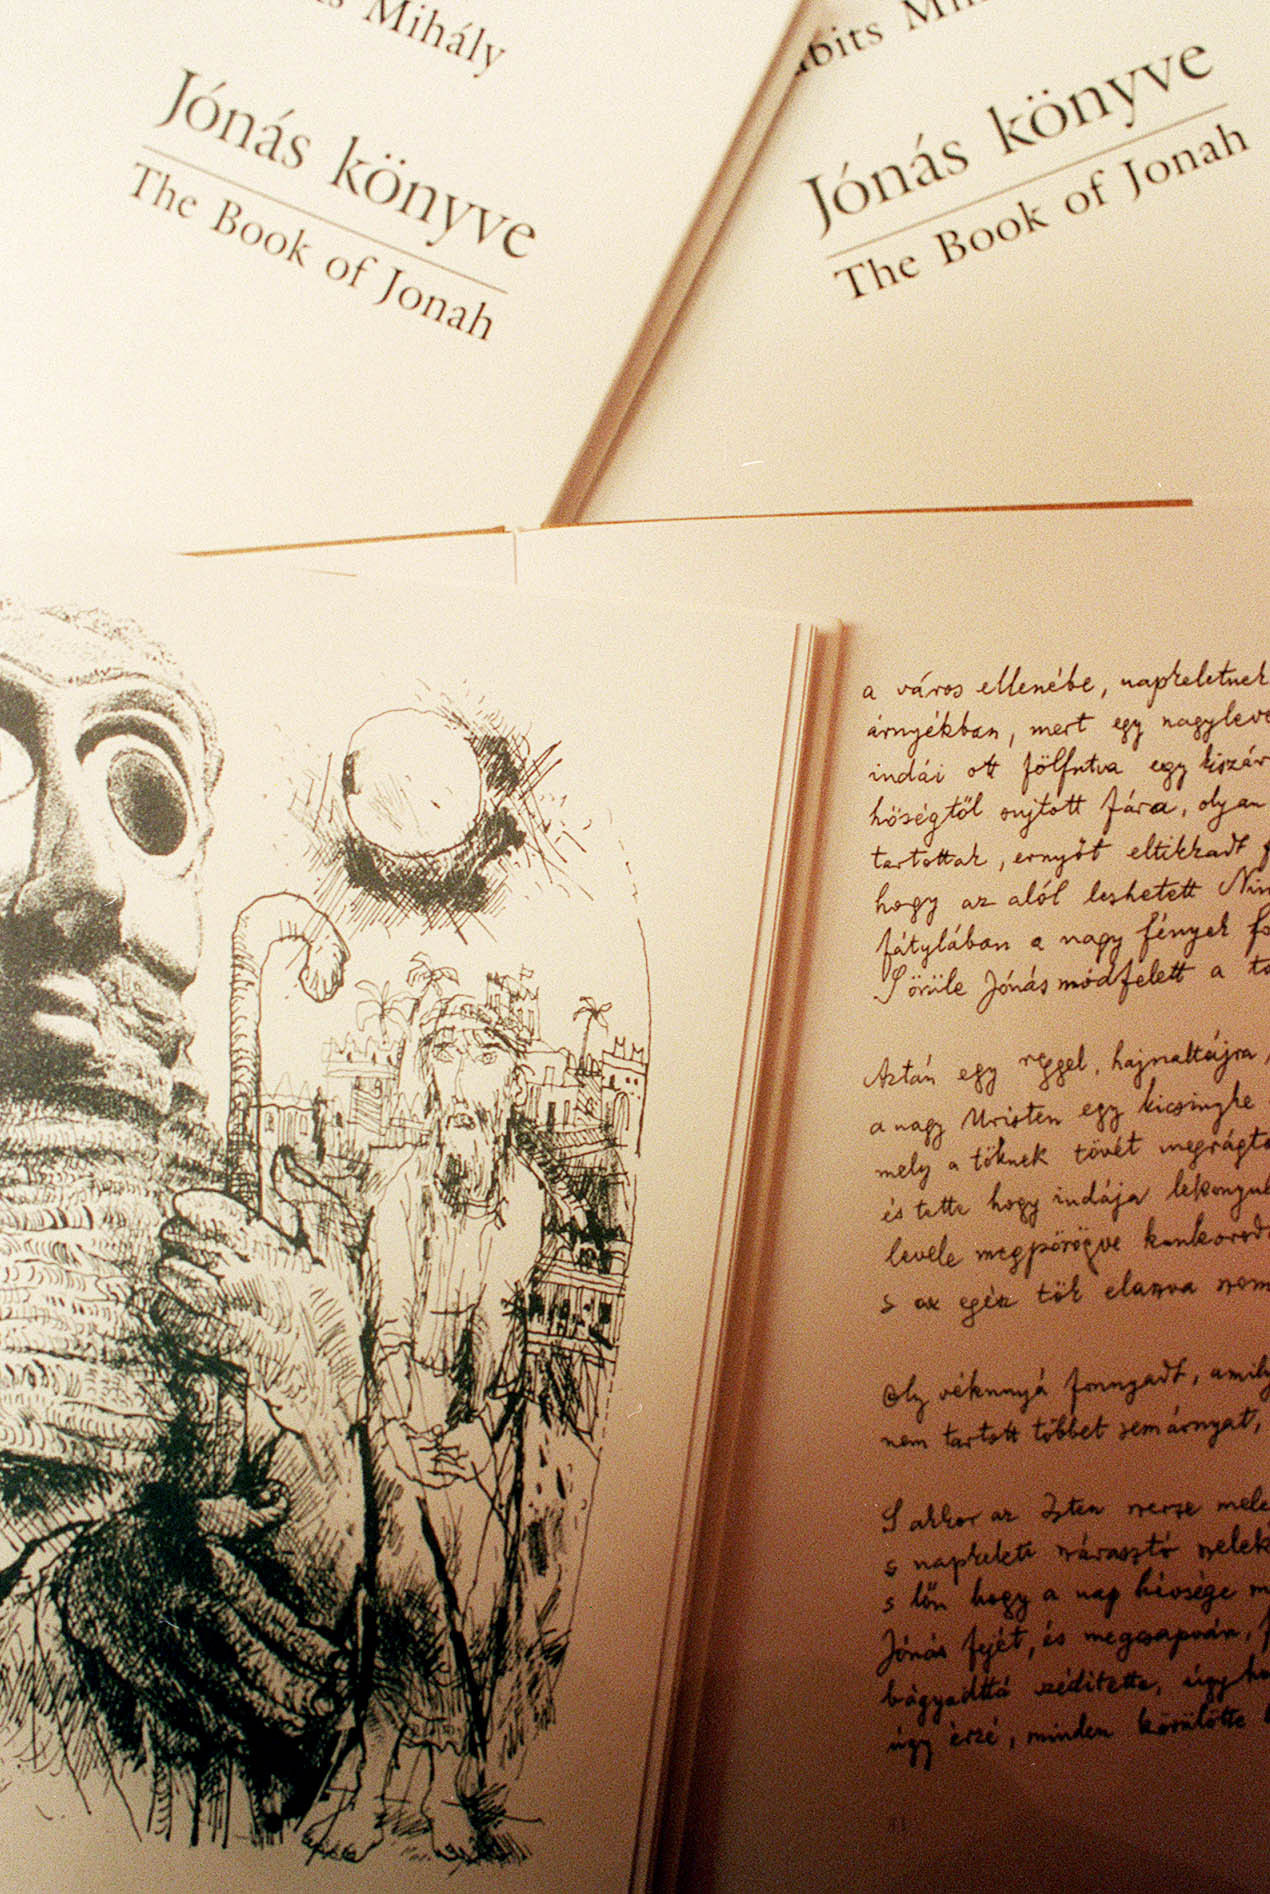 Mihály
Jónás könyve
The Book of Jonah
Jónás könyve
The Book of Jonah
a város ellenébe, napkeletnek
árnyékban, mert egy nagyleve
indái ott fölfutva egy kiszár
hőségtől sujtott fára, olyan
tartottak, ernyőt eltikkadt
hogy az alól leshetett Nin
fátylában a nagy fények fo
S örüle Jónás módfelett a
Aztán egy reggel, hajnaltájra,
a nagy Uristen egy kicsinyke
mely a töknek tövét megrágta
és tette hogy indája lekonyul
levele megpörögve kunkorod
s az egész tök elaszva szom
Oly vékonnyá fonnyadt, amily
nem tartott többet sem árnyat,
S akkor az Isten szerze mele
s napkeleti szárasztó szelek
s lőn hogy a nap hévsége
Jónás fejét, és megcsapván,
bágyadttá szédítette, úgy ho
úgy érzé, minden körülötte